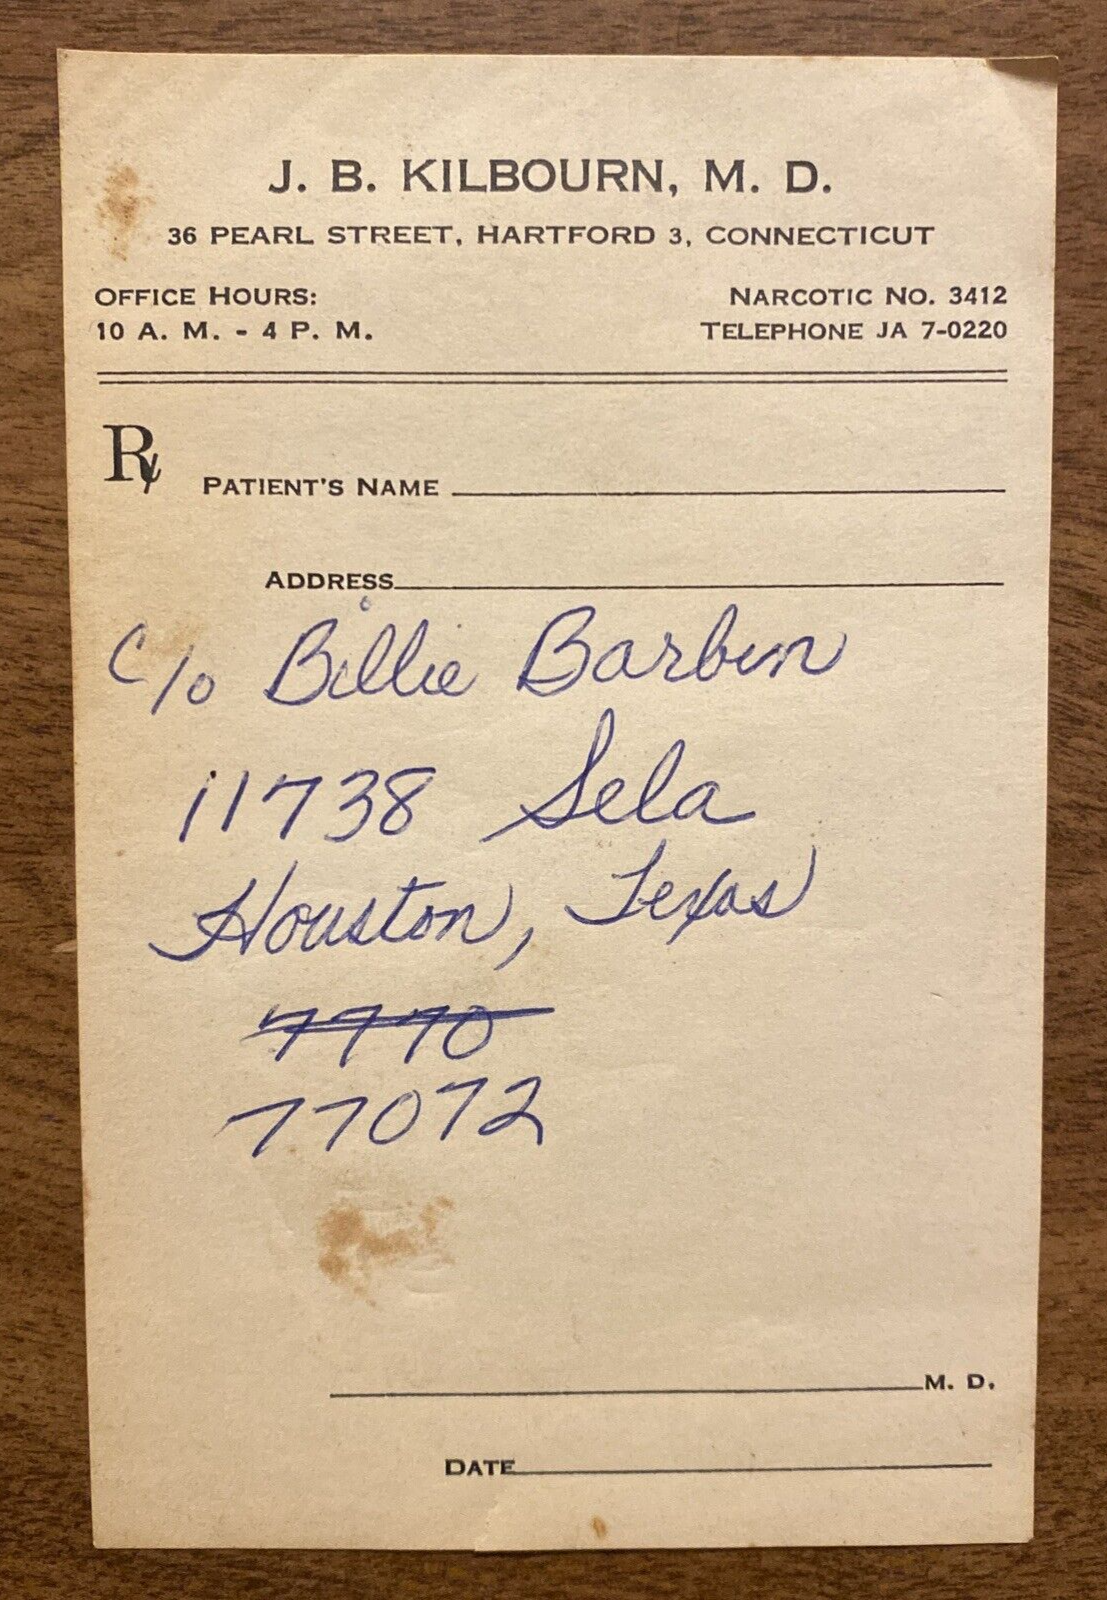 J. B. KILBOURN, M. D.
36 PEARL STREET, HARTFORD 3, CONNECTICUT
OFFICE HOURS:
10 A. M. - 4 P. M.
NARCOTIC NO. 3412
TELEPHONE JA 7-0220
Rx
PATIENT'S NAME
ADDRESS
c/o Billie Barben
11738 Sela
Houston, Texas
7770
77072
M. D.
DATE